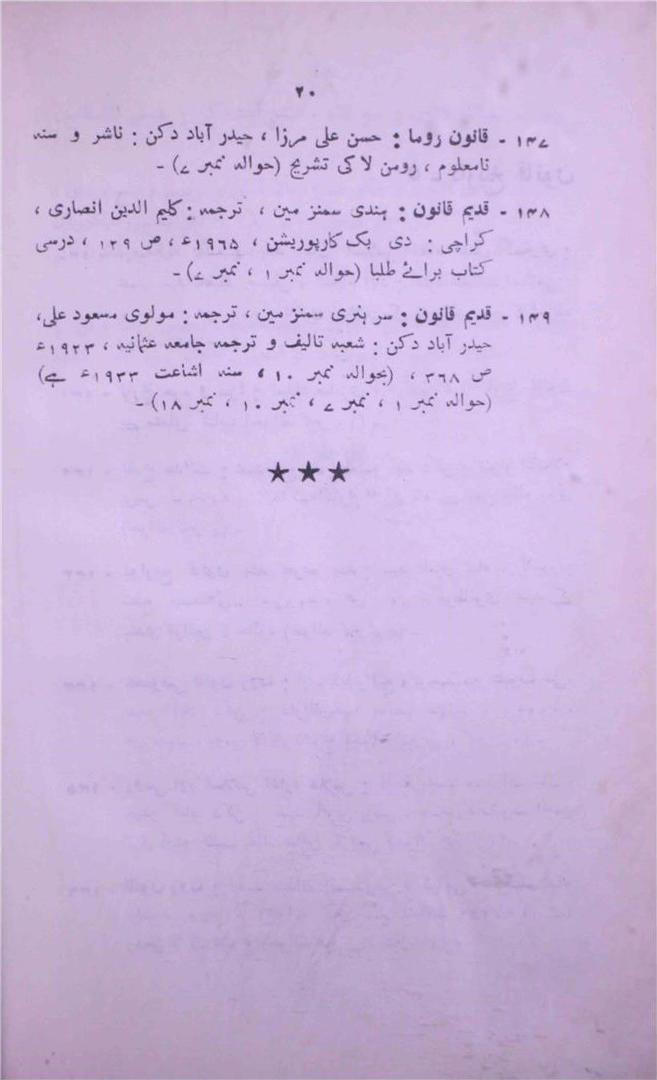 ۲۰
۱۴۷ - قانون روما : حسن علی مرزا ، حیدر آباد دکن : ناشر و سنہ
نامعلوم ، رومن لا کی تشریح (حوالہ نمبر ۷) -
۱۴۸ - قدیم قانون : ہندی سمنز مین ، ترجمہ : کلیم الدین انصاری ،
کراچی : دی بک کارپوریشن ، ۱۹۶۵ء ، ص ۱۲۹ ، درسی
کتاب برائے طلبا (حوالہ نمبر ۱ ، نمبر ۷) -
۱۴۹ - قدیم قانون : سر ہنری سمنز مین ، ترجمہ : مولوی مسعود علی،
حیدر آباد دکن : شعبہ تالیف و ترجمہ جامعہ عثمانیہ ، ۱۹۲۳ء
ص ۳۶۸ ، (بحوالہ نمبر ۱۰ ، سنہ اشاعت ۱۹۳۳ء ہے)
(حوالہ نمبر ۱ ، نمبر ۷ ، نمبر ۱۰ ، نمبر ۱۸) -
★★★